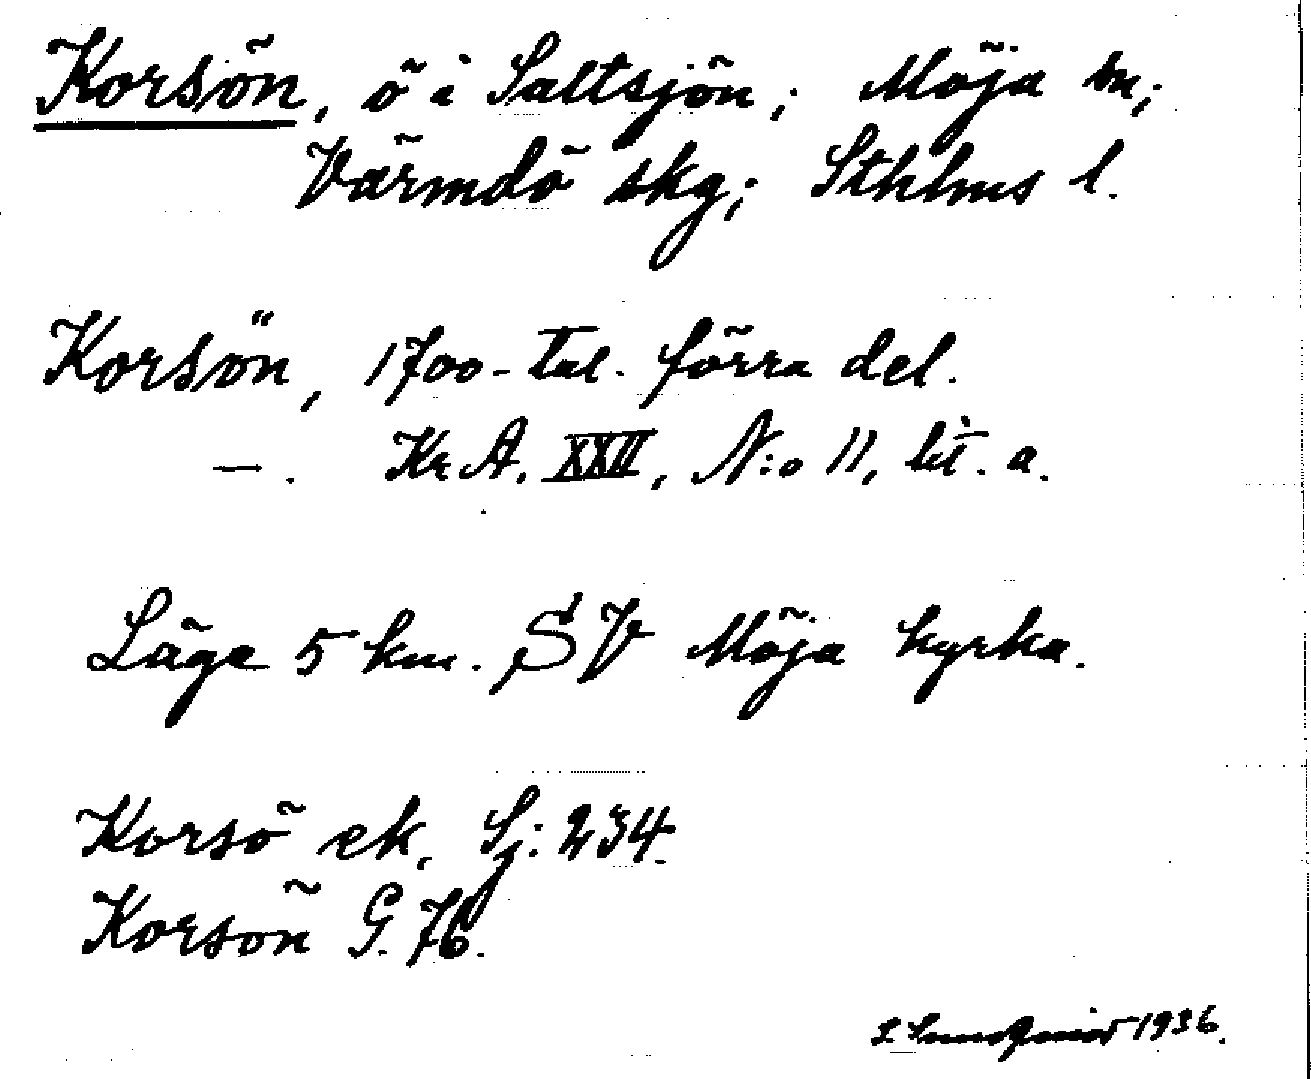 Korsön, ö i Saltsjön; Möja sn;
Värmdö skg; Sthlms l.
Korsön, 1700-tal. förra del.
—. Kr A. XXII, N:o 11, lit. a.
Läge 5 km. SV Möja kyrka.
Korsö ek. Sj: 234.
Korsön G. 76.
1936.